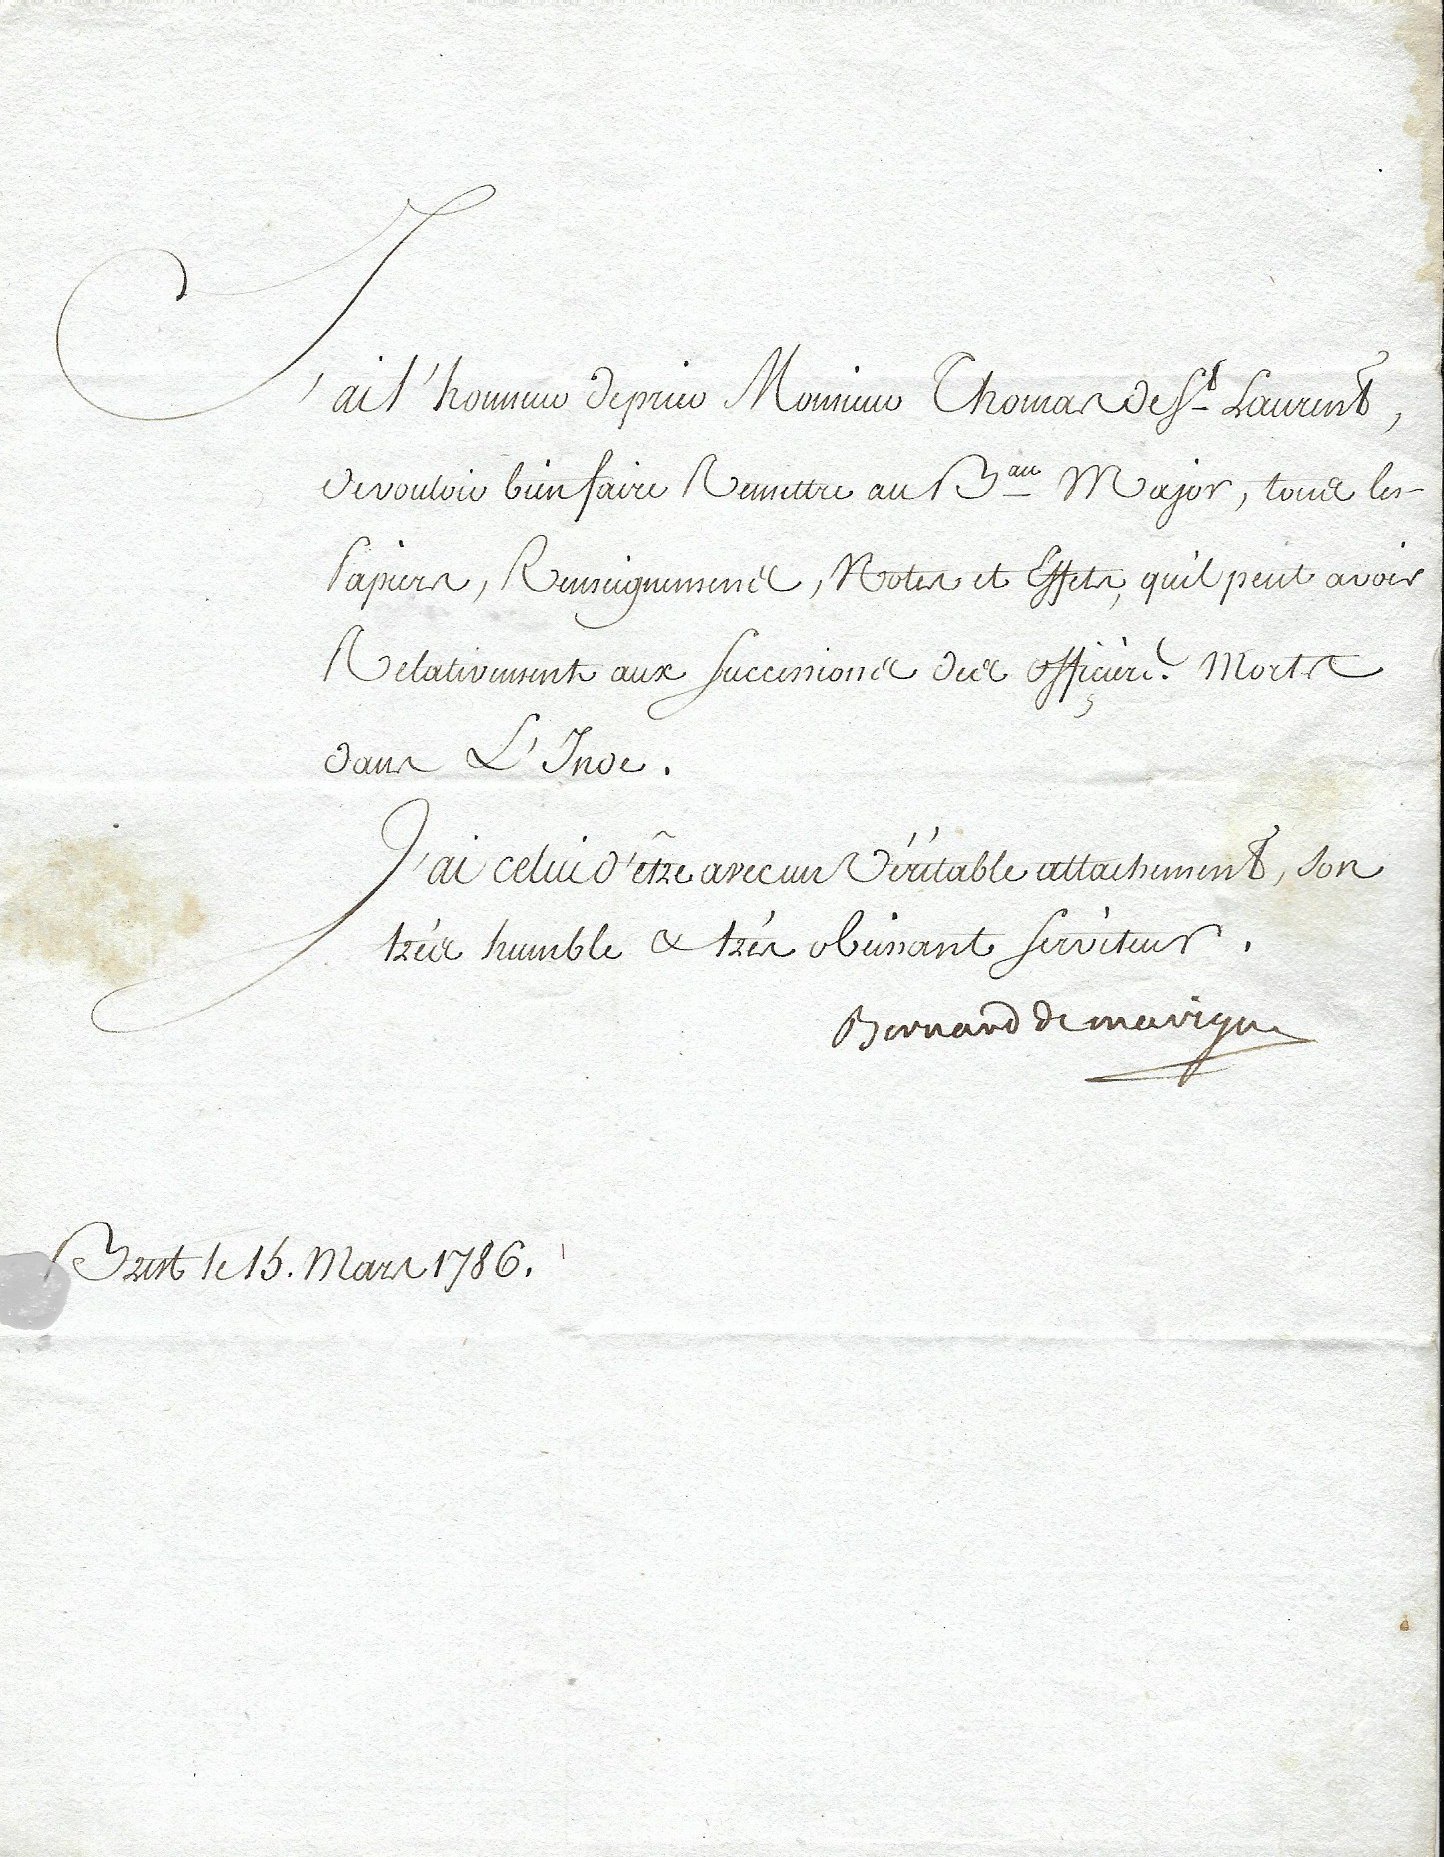 J'ai l'honneur de prier Monsieur Thomas de St. Laurent,
de vouloir bien faire Remettre au Bau Major, tous les
Papiers, Renseignements, Notes et Effets, qu'il peut avoir
Relativement aux Successions des officiers Morts
dans L'Inde.
J'ai celui d'être avec un Véritable attachement, son
très humble & très obéissant serviteur.
Bernard de marigny
Brest le 15. Mars 1786.